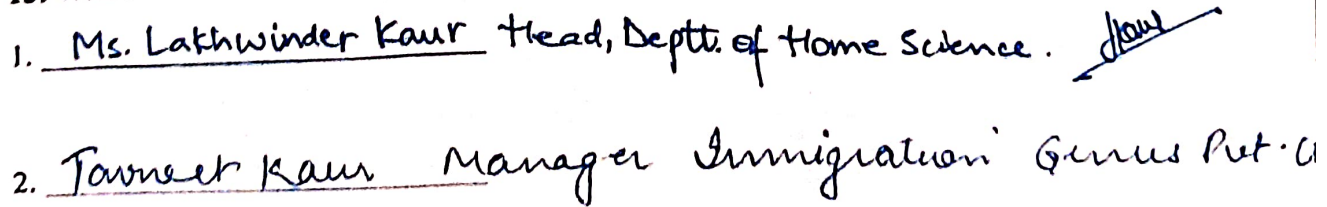 1. Ms. Lakhwinder Kaur Head, Deptt. of Home Science. Kaur
2. Tavneet Kaur Manager Immigration Genius Pvt.